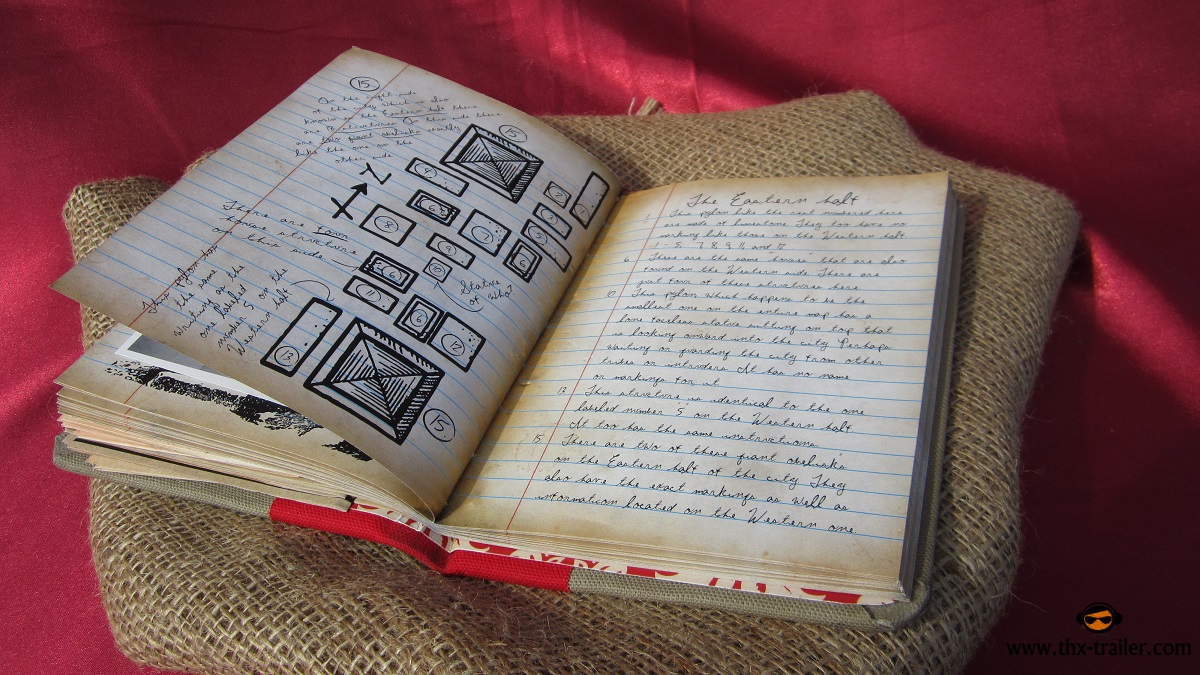 15
On the right side
of the city which is also
known as the Eastern half there
are 18 structures On this side there
are two giant obelisks exactly
like the one on the
other side
N
There are four
house structure
on this side
This pylon has
the same
writing as the
one labeled
number 5 on the
Western half
Statue
of who?
15
4
2
1
6
3
8
7
5
9
6
10
6
11
6
12
13
15
The Eastern half
1. This pylon like the rest numbered here
are made of limestone They too have no
marking like those on the Western half
1 - 5, 7, 8, 9, 11, and 12
6. These are the same houses that are also
found on the Western side There are
just four of these structures here
10. This pylon which happens to be the
smallest one on the entire map has a
lone faceless statue sitting on top that
is looking onward into the city Perhaps
waiting or guarding the city from other
tribes or intruders It has no name
or markings for it
13. This structure is identical to the one
labeled number 5 on the Western half
It too has the same instructions
15. There are two of these giant obelisk's
on the Eastern half of the city They
also have the exact markings as well as
information located on the Western one.
www.thx-trailer.com